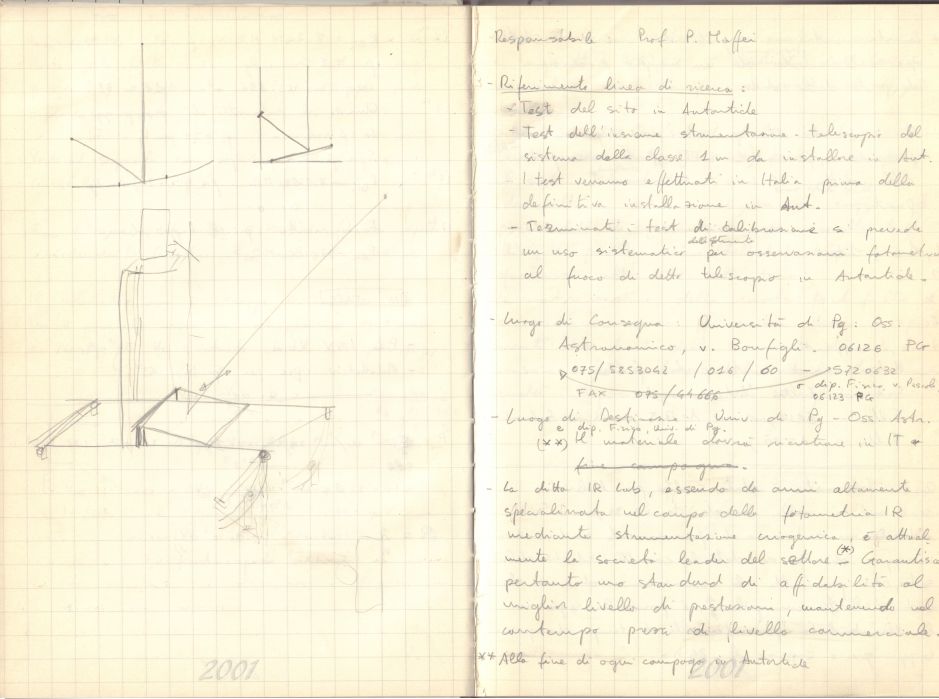 Responsabile : Prof. P. Maffei
- Riferimento linea di ricerca :
- Test del sito in Antartide
- Test dell'insieme strumentazione - telescopio del
sistema della classe 1 m da installare in Ant.
- I test verranno effettuati in Italia prima della
definitiva installazione in Ant.
- Terminati i test di calibrazione si prevede
dello strumento
un uso sistematico per osservazioni fotometriche
al fuoco di detto telescopio in Antartide.
- Luogo di Consegna : Università di Pg : Oss.
Astronomico, v. Bonfigli. 06126 PG
075/5853042 / 016 / 60 - 5720632
o dip. Fisica, v. Pascoli
FAX 075/44666
06123 PG
- Luogo di Destinazione Univ di Pg - Oss. Astr.
e dip. Fisica, Univ. di Pg.
(**) Il materiale dovrà rientrare in IT *
fine campagna.
- La ditta IR Lab, essendo da anni altamente
specializzata nel campo della fotometria IR
mediante strumentazione criogenica, è attual-
mente la società leader del settore (*) - Garantisce
pertanto uno standard di affidabilità al
miglior livello di prestazioni, mantenendo nel
contempo prezzi di livello commerciale.
** Alla fine di ogni campagna in Antartide
2001
2001